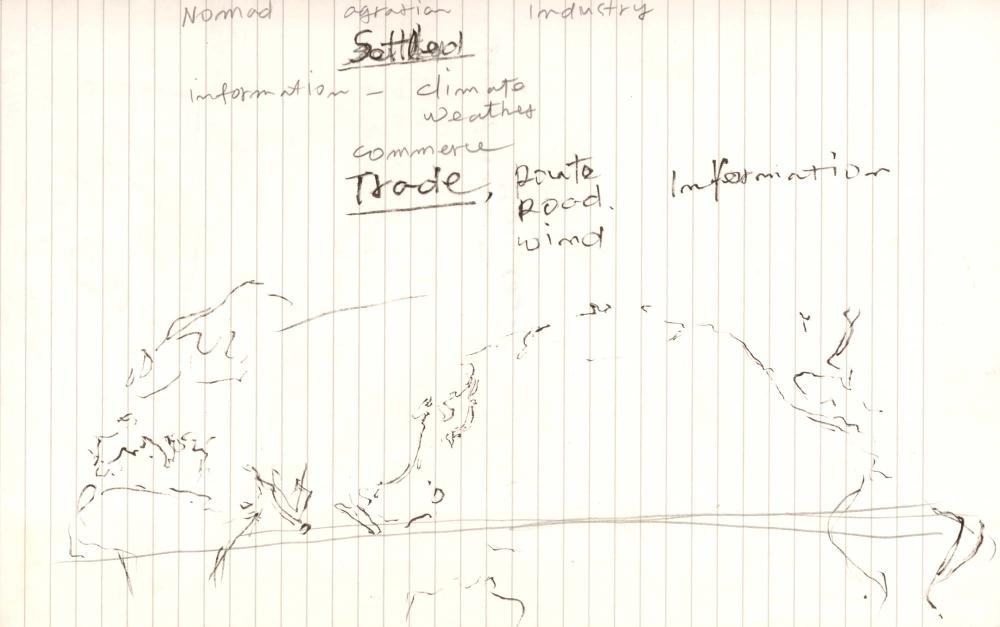 Nomad agrarian Industry
Settled
information - climate
weather
commerce
Trade, Route Information
Road.
wind